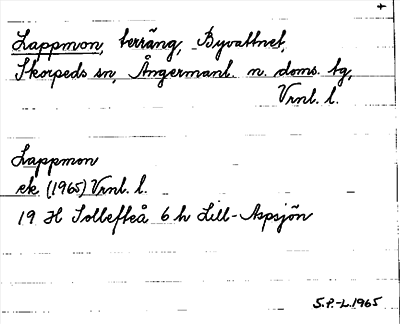 +
Lappmon, terräng, Byvattnet,
Skorpeds sn, Ångermanl. n. doms. tg,
Vrnl. l.
Lappmon
ek (1965) Vrnl. l.
19 H Sollefteå 6 h Lill-Aspsjön
S.P.-L.1965